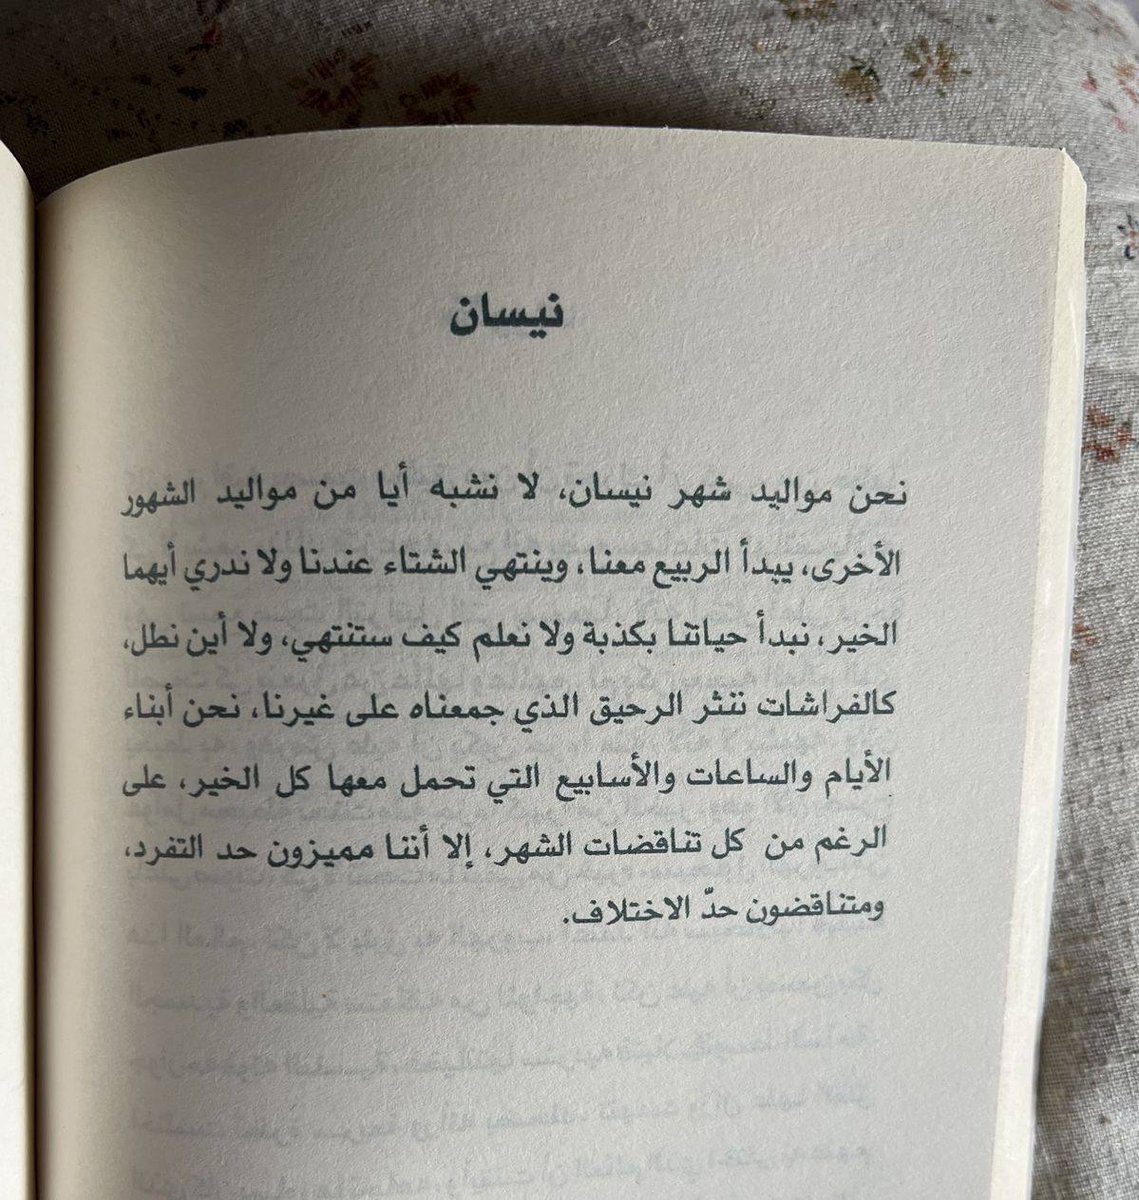 نيسان
نحن مواليد شهر نيسان، لا نشبه أيا من مواليد الشهور
الأخرى، يبدأ الربيع معنا، وينتهي الشتاء عندنا ولا ندري أيهما
الخير، نبدأ حياتنا بكذبة ولا نعلم كيف ستنتهي، ولا أين نطل،
كالفراشات ننثر الرحيق الذي جمعناه على غيرنا، نحن أبناء
الأيام والساعات والأسابيع التي تحمل معها كل الخير، على
الرغم من كل تناقضات الشهر، إلا أننا مميزون حد التفرد،
ومتناقضون حدّ الاختلاف.